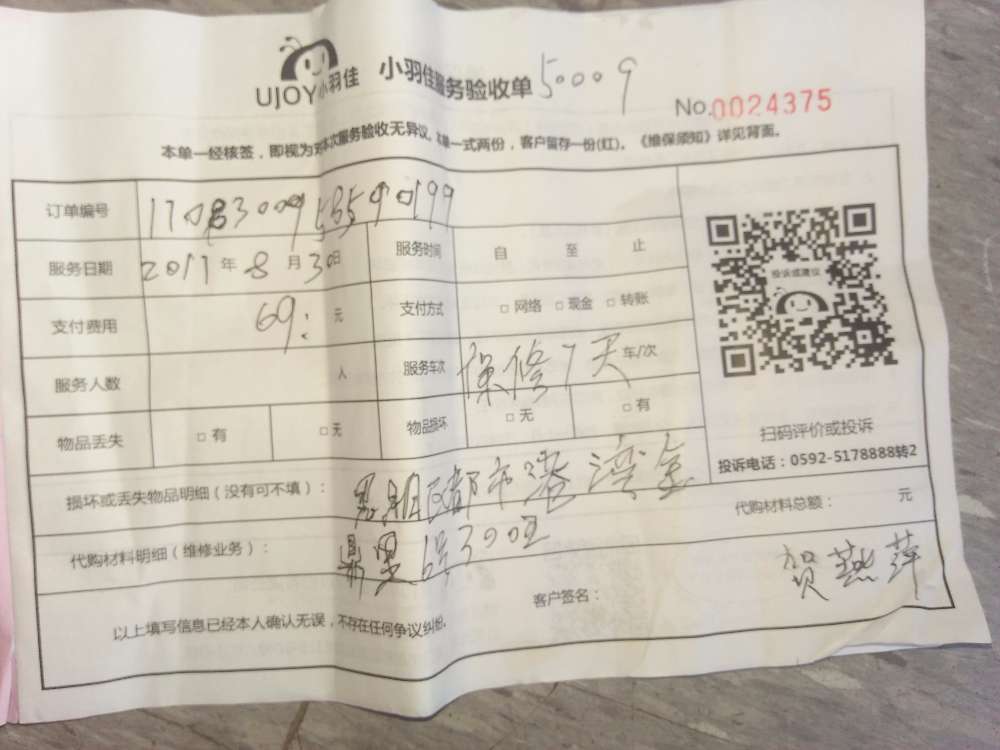 UJOY小羽佳 小羽佳服务验收单 50009
No.0024375
本单一经核签，即视为对本次服务验收无异议。本单一式两份，客户留存一份(红)。《维保须知》详见背面。
订单编号 1708300955590199
服务日期 2017年8月30日 服务时间 自 至 止
支付费用 69: 元 支付方式 □ 网络 □ 现金 □ 转账
服务人数 人 服务车次 保修7天 车/次
物品丢失 □ 有 □ 无 物品损坏 □ 无 □ 有
投诉或建议
扫码评价或投诉
投诉电话：0592-5178888转2
损坏或丢失物品明细（没有可不填）： 都市港湾金
代购材料总额： 元
代购材料明细（维修业务）： 鼎里6号300
客户签名： 贺燕萍
以上填写信息已经本人确认无误，不存在任何争议纠纷。